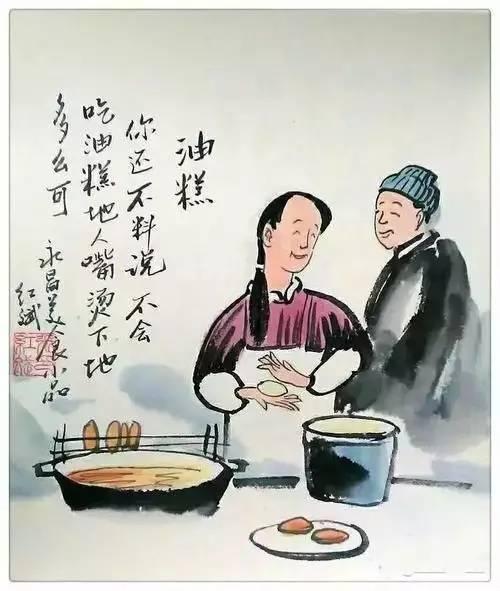 油糕
你还不料说 不会
吃油糕地人嘴烫下地
多么可
永昌美食小品
红斌